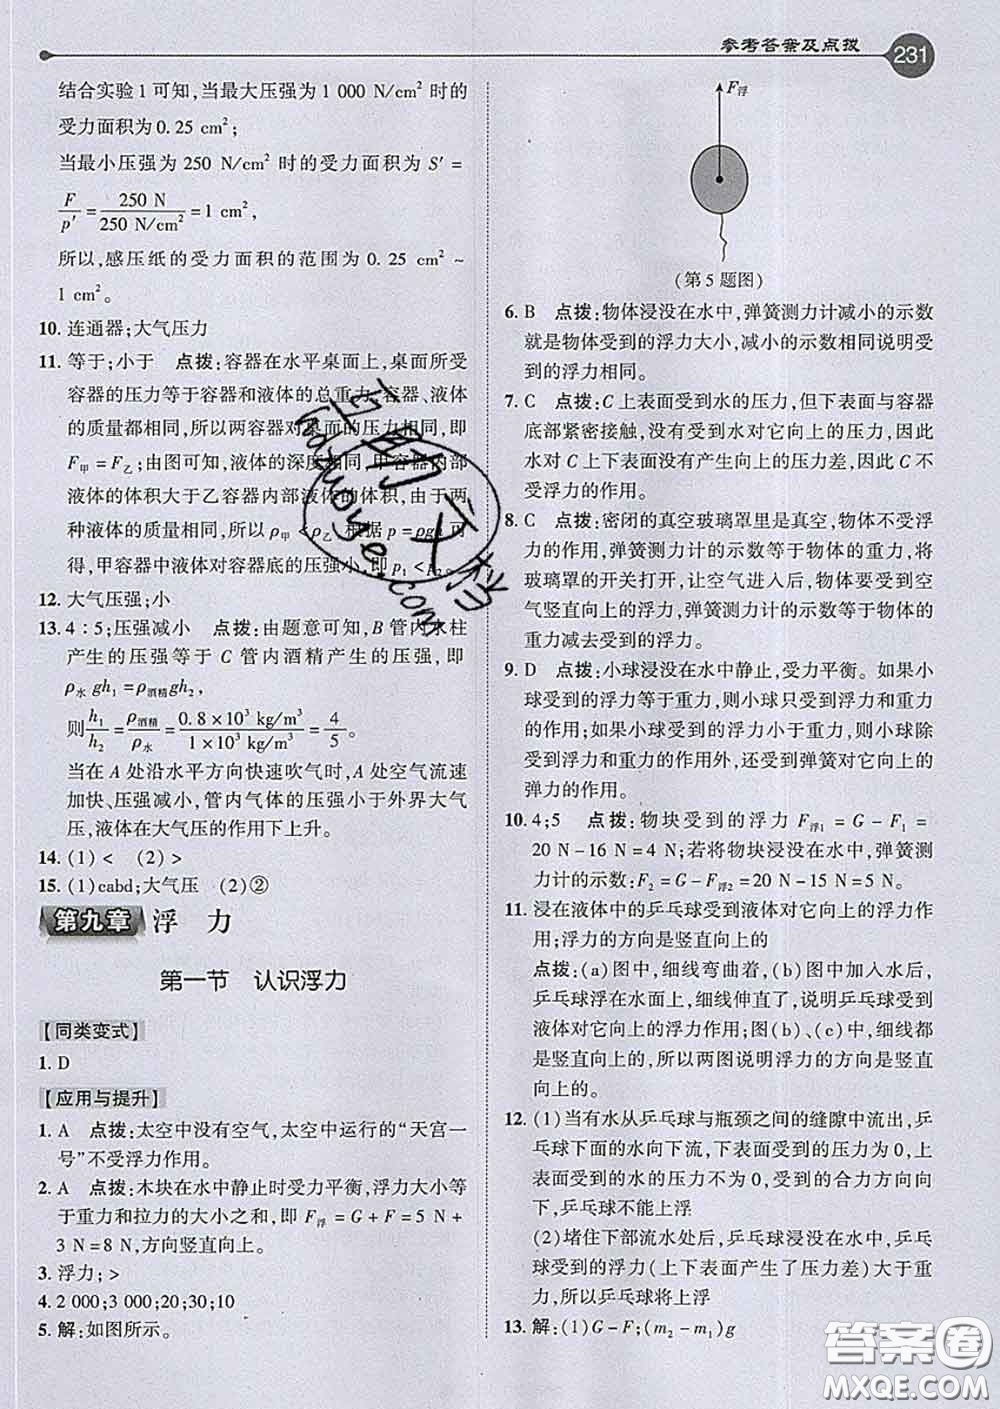 参考答案及点拨
231
结合实验1可知,当最大压强为1 000 N/cm²时的
受力面积为0.25 cm²;
当最小压强为250 N/cm²时的受力面积为S′=
F/p′=250 N/250 N/cm²=1 cm²,
所以,感压纸的受力面积的范围为0.25 cm²~
1 cm²。
10. 连通器;大气压力
11. 等于;小于 点拨:容器在水平桌面上,桌面所受
容器的压力等于容器和液体的总重力,容器、液体
的质量都相同,所以两容器对桌面的压力相同,即
F甲=F乙;由图可知,液体的深度相同,甲容器内部
液体的体积大于乙容器内部液体的体积,由于两
种液体的质量相同,所以ρ甲<ρ乙,根据p=ρgh可
得,甲容器中液体对容器底的压强小,即p₁<p₂。
12. 大气压强;小
13. 4∶5;压强减小 点拨:由题意可知,B管内水柱
产生的压强等于C管内酒精产生的压强,即
ρ水gh₁=ρ酒精gh₂,
则h₁/h₂=ρ酒精/ρ水=0.8×10³ kg/m³/1×10³ kg/m³=4/5。
当在A处沿水平方向快速吹气时,A处空气流速
加快、压强减小,管内气体的压强小于外界大气
压,液体在大气压的作用下上升。
14. (1)< (2)>
15. (1)cabd;大气压 (2)②
第九章 浮 力
第一节 认识浮力
【同类变式】
1. D
【应用与提升】
1. A 点拨:太空中没有空气,太空中运行的“天宫一
号”不受浮力作用。
2. A 点拨:木块在水中静止时受力平衡,浮力大小等
于重力和拉力的大小之和,即F浮=G+F=5 N+
3 N=8 N,方向竖直向上。
3. 浮力;>
4. 2 000;3 000;20;30;10
5. 解:如图所示。
F浮
(第5题图)
6. B 点拨:物体浸没在水中,弹簧测力计减小的示数
就是物体受到的浮力大小,减小的示数相同说明受
到的浮力相同。
7. C 点拨:C上表面受到水的压力,但下表面与容器
底部紧密接触,没有受到水对它向上的压力,因此
水对C上下表面没有产生向上的压力差,因此C不
受浮力的作用。
8. C 点拨:密闭的真空玻璃罩里是真空,物体不受浮
力的作用,弹簧测力计的示数等于物体的重力,将
玻璃罩的开关打开,让空气进入后,物体要受到空
气竖直向上的浮力,弹簧测力计的示数等于物体的
重力减去受到的浮力。
9. D 点拨:小球浸没在水中静止,受力平衡。如果小
球受到的浮力等于重力,则小球只受到浮力和重力
的作用;如果小球受到的浮力小于重力,则小球除
受到浮力和重力的作用外,还受到弹簧对它向上的
弹力的作用。
10. 4;5 点拨:物块受到的浮力F浮₁=G-F₁=
20 N-16 N=4 N;若将物块浸没在水中,弹簧测
力计的示数:F₂=G-F浮₂=20 N-15 N=5 N。
11. 浸在液体中的乒乓球受到液体对它向上的浮力作
用;浮力的方向是竖直向上的
点拨:(a)图中,细线弯曲着,(b)图中加入水后,
乒乓球浮在水面上,细线伸直了,说明乒乓球受到
液体对它向上的浮力作用;图(b)、(c)中,细线都
是竖直向上的,所以两图说明浮力的方向是竖直
向上的。
12. (1)当有水从乒乓球与瓶颈之间的缝隙中流出,乒
乓球下面的水向下流,下表面受到的压力为0,上
表面受到的水的压力不为0,受到的合力方向向
下,乒乓球不能上浮
(2)堵住下部流水处后,乒乓球浸没在水中,乒乓
球受到的浮力(上下表面产生了压力差)大于重
力,所以乒乓球将上浮
13. 解:(1)G-F;(m₂-m₁)g
答案圈
MXQE.COM